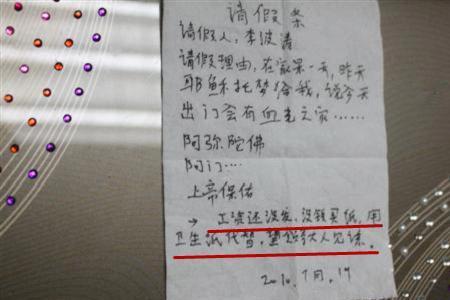 请假条
请假人：李波涛
请假理由，在家呆一天，昨天
耶稣托梦给我，说今天
出门会有血光之灾……
阿弥陀佛
阿门……
上帝保佑
→工资还没发，没钱买纸，用
卫生纸代替，望领导大人见谅。
2010.7月.19